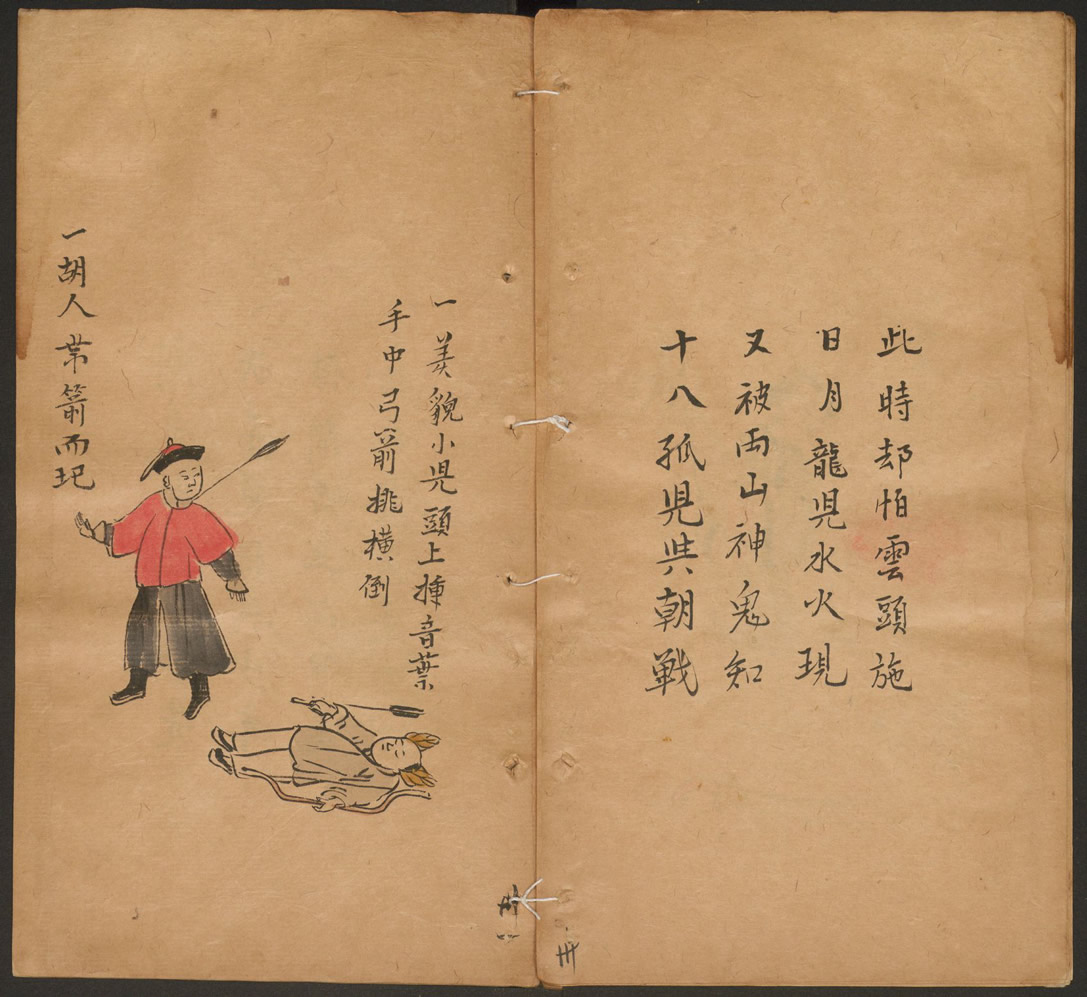 此時却怕雲頭施
日月龍児水火現
又被両山神鬼知
十八孤児共朝戦
卅
一美貌小児頭上挿音葉
手中弓箭挑横倒
一胡人帯箭而
卅一